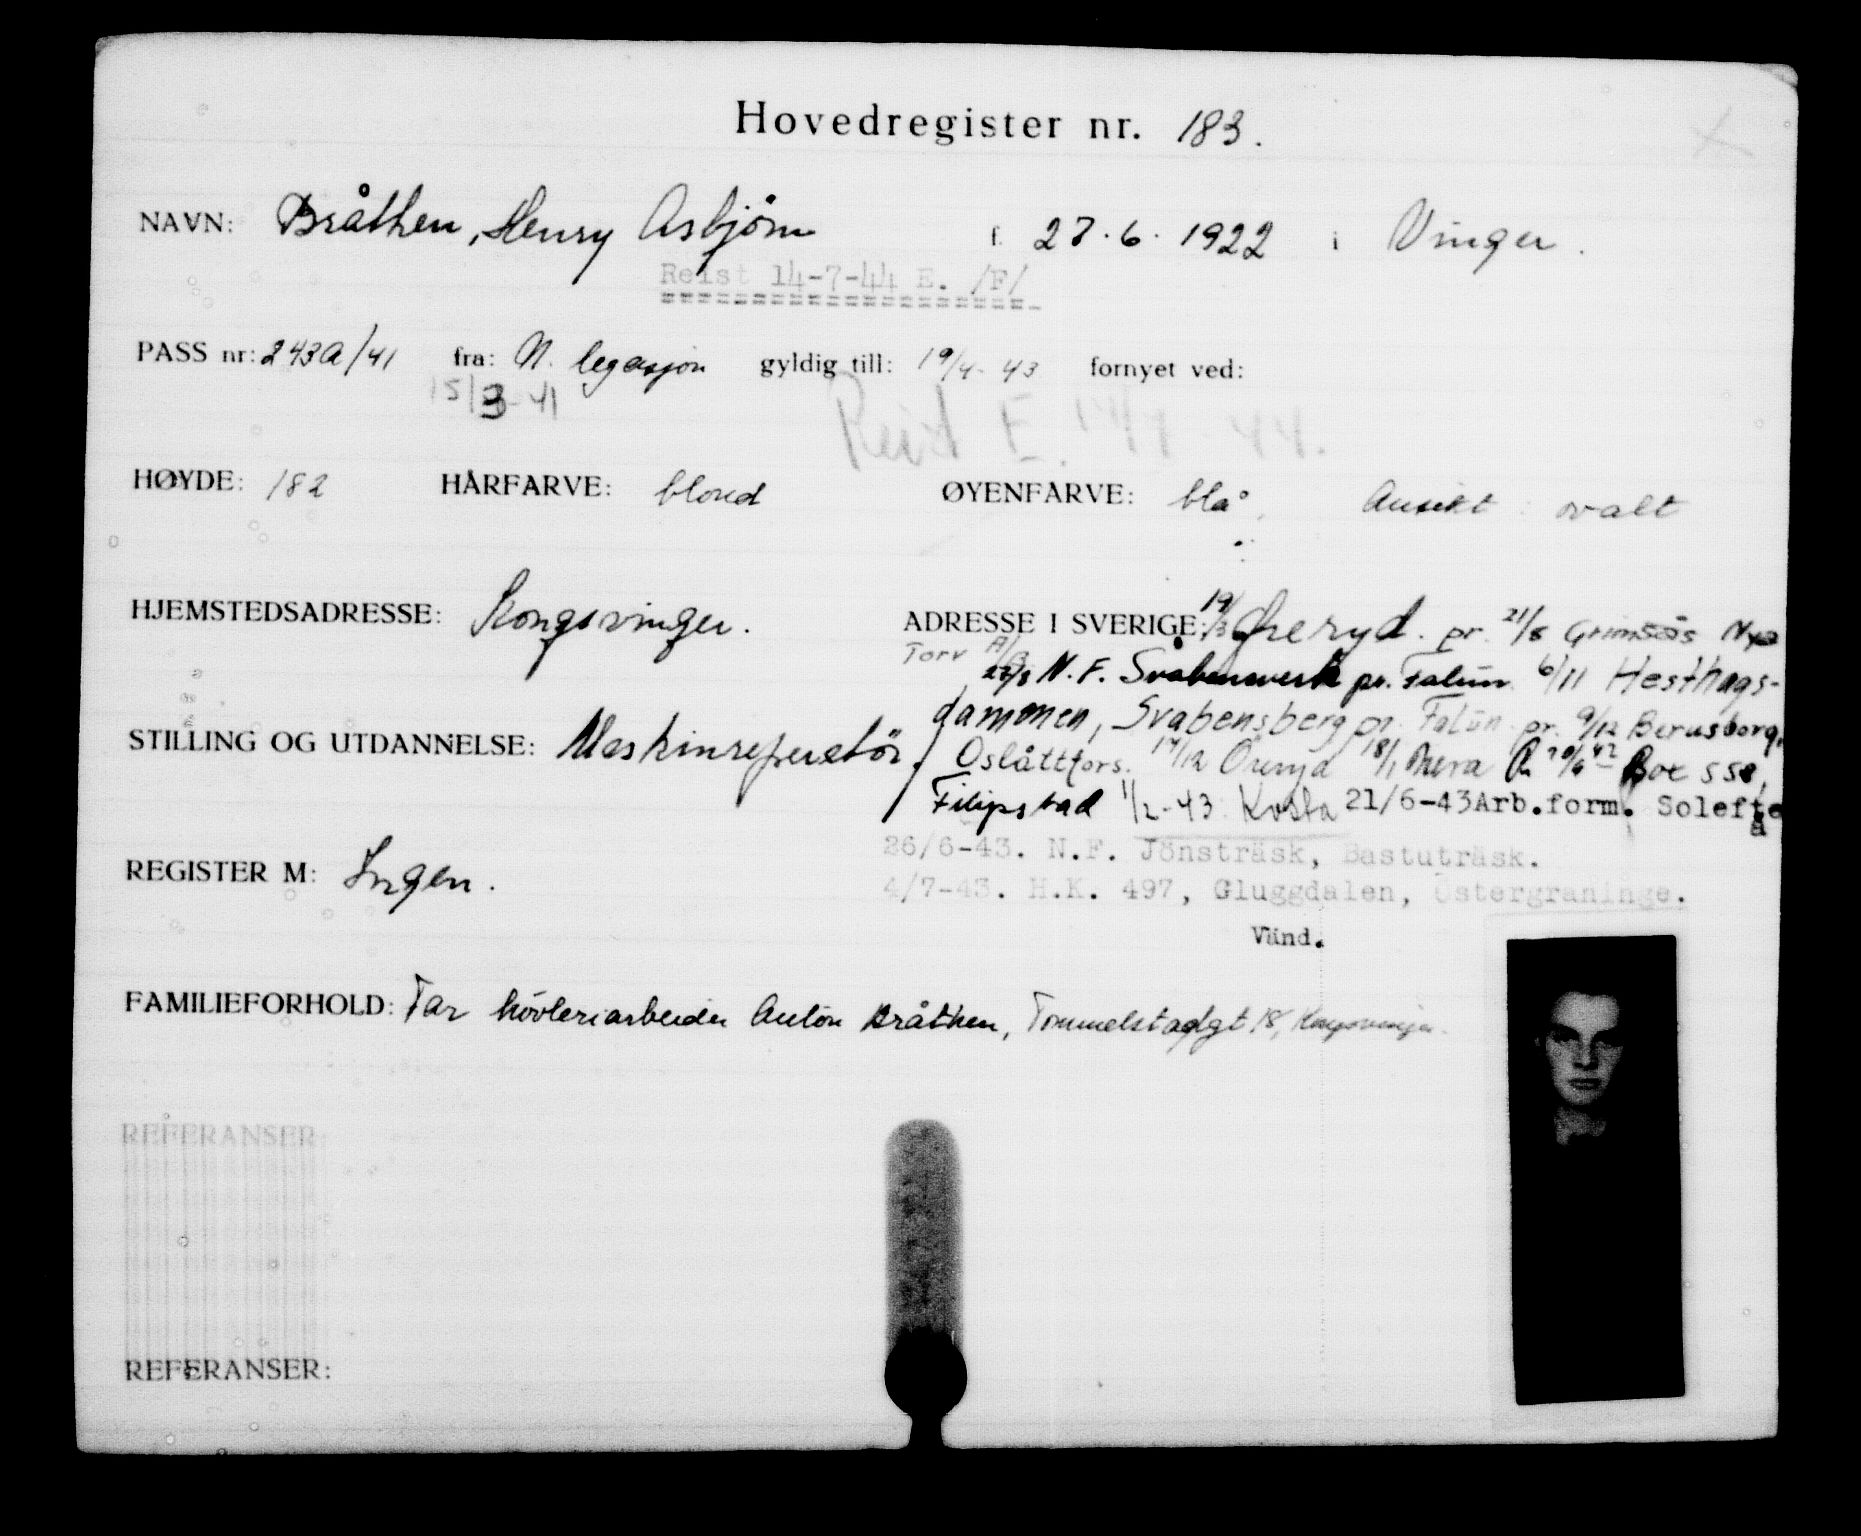 Hovedregister nr. 183.
NAVN: Bråthen, Henry Asbjörn f. 27.6.1922 i Vinger.
Reist 14-7-44 E. /F/
PASS nr: 243A/41 fra: N. legasjon gyldig till: 19/4-43 fornyet ved:
15/3-41
Reist E. 14/7-44.
HØYDE: 182 HÅRFARVE: blond ØYENFARVE: blå, Ansikt: ovalt
HJEMSTEDSADRESSE: Kongsvinger. ADRESSE I SVERIGE: 19/3 Öreryd. pr. 21/8 Grimsås Nya
Torv A/B
22/8 N.F. Svabensverk pr. Falun. 6/11 Hesthags-
dammen, Svabensberg pr. Falun. pr. 9/12
STILLING OG UTDANNELSE: Maskinreparatör.
Oslättfors. 14/12 Öreryd 18/1 20/6 42 Box 558,
Filipstad 1/2-43 Kosta 21/6-43 Arb.form. Solefteå
REGISTER M: Ingen. 26/6-43. N.F. Jönsträsk, Bastuträsk.
4/7-43. H.K. 497, Gluggdalen, Östergraninge.
Vänd.
FAMILIEFORHOLD: Far hövleriarbeider Anton Bråthen, Tommelstadgt 18, Kongsvinger.
REFERANSER:
REFERANSER: